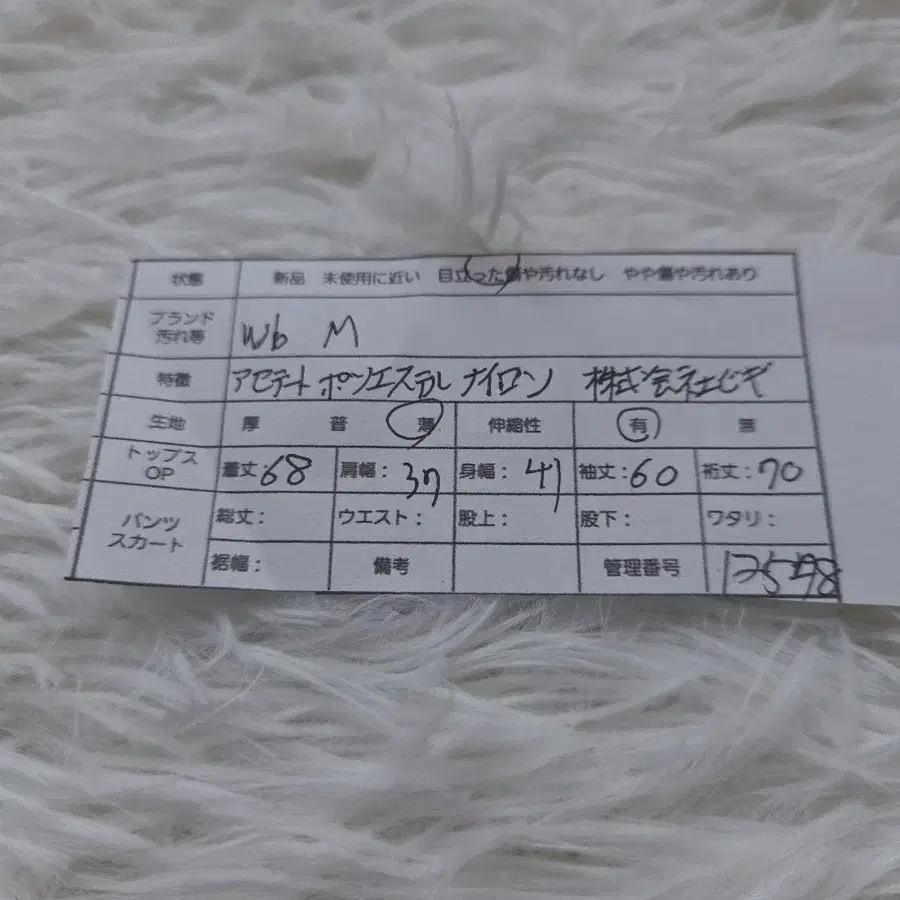 状態 新品 未使用に近い 目立った傷や汚れなし やや傷や汚れあり
ブランド
汚れ等 Wb M
特徴 アセテート ポリエステル ナイロン 株式会社ビギ
生地 厚 普 薄 伸縮性 有 無
トップス
OP 着丈:68 肩幅:37 身幅:41 袖丈:60 裄丈:70
パンツ
スカート 総丈: ウエスト: 股上: 股下: ワタリ:
裾幅: 備考 管理番号 12598